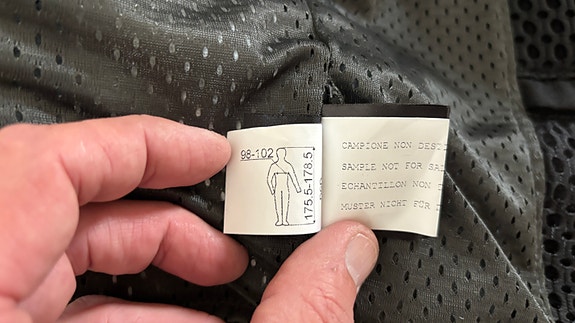 98-102
175.5-178.5
CAMPIONE NON
SAMPLE NOT FOR
ECHANTILLON NON
MUSTER NICHT FÜR